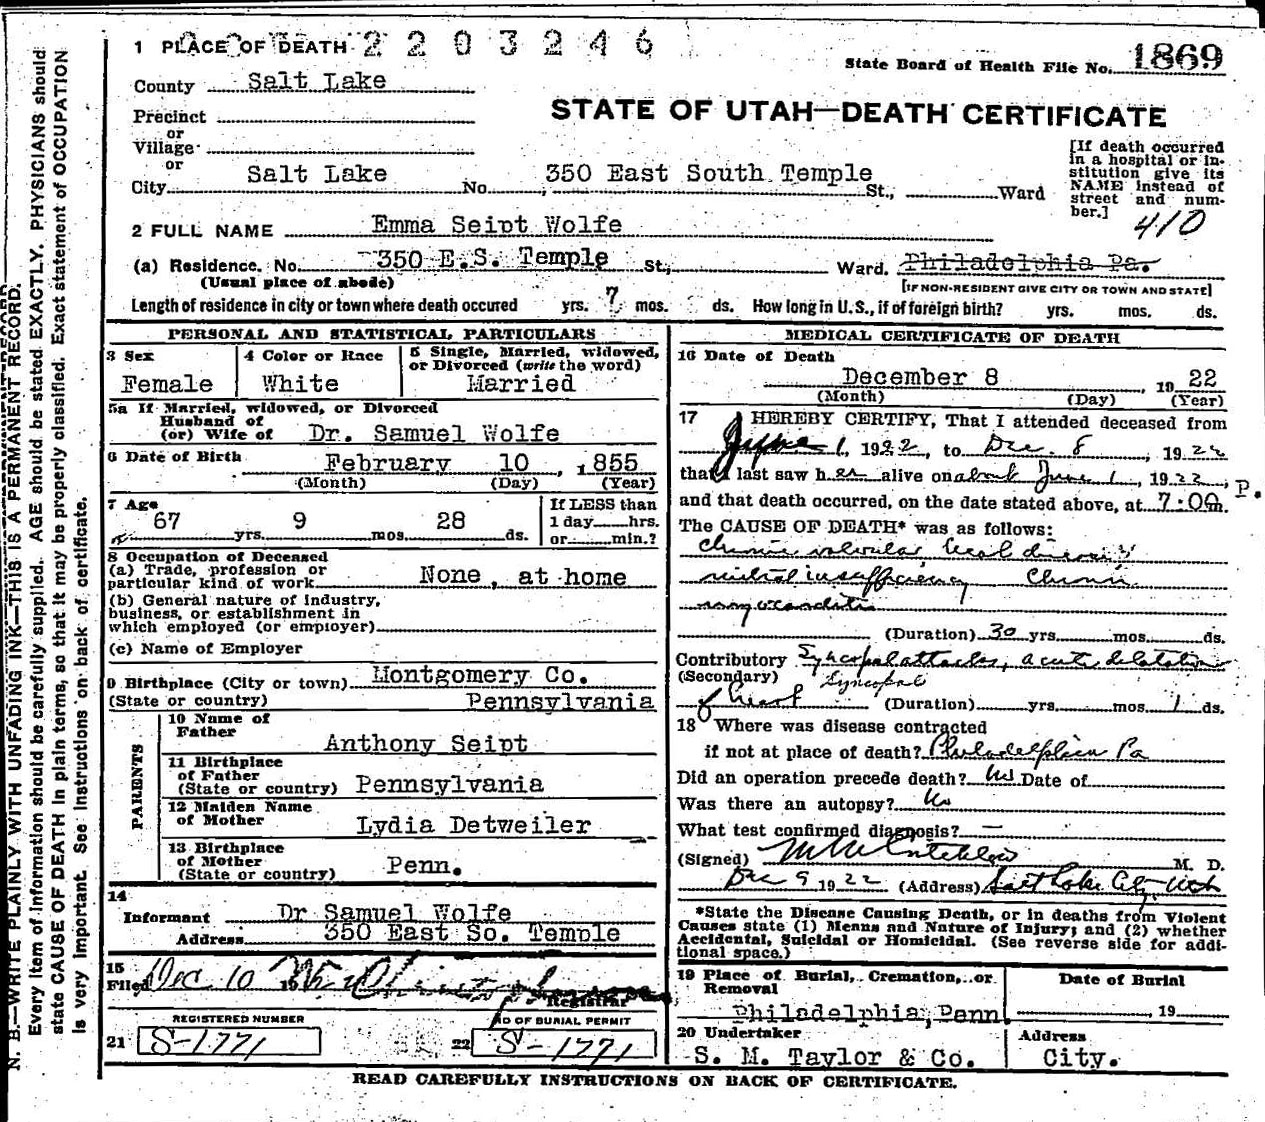 1 PLACE OF DEATH 2203246
State Board of Health File No. 1869
County Salt Lake
STATE OF UTAH—DEATH CERTIFICATE
Precinct
or
Village
or
City Salt Lake No. 350 East South Temple St., Ward
[If death occurred in a hospital or institution give its NAME instead of street and number.]
410
2 FULL NAME Emma Seipt Wolfe
(a) Residence. No. 350 E.S. Temple St., Ward. Philadelphia Pa.
(Usual place of abode) [IF NON-RESIDENT GIVE CITY OR TOWN AND STATE]
Length of residence in city or town where death occured yrs. 7 mos. ds. How long in U.S., if of foreign birth? yrs. mos. ds.
PERSONAL AND STATISTICAL PARTICULARS
3 Sex
Female
4 Color or Race
White
5 Single, Married, widowed, or Divorced (write the word)
Married
5a If Married, widowed, or Divorced
Husband of
(or) Wife of Dr. Samuel Wolfe
6 Date of Birth February 10, 1855
(Month) (Day) (Year)
7 Age
67 yrs. 9 mos. 28 ds.
If LESS than
1 day hrs.
or min.?
8 Occupation of Deceased
(a) Trade, profession or
particular kind of work None, at home
(b) General nature of industry,
business, or establishment in
which employed (or employer)
(c) Name of Employer
9 Birthplace (City or town) Montgomery Co.
(State or country) Pennsylvania
PARENTS
10 Name of
Father Anthony Seipt
11 Birthplace
of Father
(State or country) Pennsylvania
12 Maiden Name
of Mother Lydia Detweiler
13 Birthplace
of Mother
(State or country) Penn.
14
Informant Dr Samuel Wolfe
Address 350 East So. Temple
15
Filed Dec 10 19
Registrar
REGISTERED NUMBER
21 S-1771
NO OF BURIAL PERMIT
22 S-1771
MEDICAL CERTIFICATE OF DEATH
16 Date of Death
December 8 19 22
(Month) (Day) (Year)
17 I HEREBY CERTIFY, That I attended deceased from
June 1, 1922, to Dec. 8, 1922
that I last saw her alive on about June 1, 1922,
and that death occurred, on the date stated above, at 7:00 P.m.
The CAUSE OF DEATH* was as follows:
Chronic valvular heart disease
mitral insufficiency Chronic
myocarditis
(Duration) 30 yrs. mos. ds.
Contributory Syncopal attacks, acute dilatation
(Secondary) Syncopal
of heart (Duration) yrs. mos. 1 ds.
18 Where was disease contracted
if not at place of death? Philadelphia Pa
Did an operation precede death? No Date of
Was there an autopsy? No
What test confirmed diagnosis? —
(Signed) M. D.
Dec 9 1922 (Address) Salt Lake City Utah
*State the Disease Causing Death, or in deaths from Violent
Causes state (1) Means and Nature of Injury; and (2) whether
Accidental, Suicidal or Homicidal. (See reverse side for additional space.)
19 Place of Burial, Cremation, or
Removal
Philadelphia, Penn
Date of Burial
19
20 Undertaker
S. M. Taylor & Co.
Address
City.
READ CAREFULLY INSTRUCTIONS ON BACK OF CERTIFICATE.
N. B.—WRITE PLAINLY WITH UNFADING INK—THIS IS A PERMANENT RECORD.
Every item of information should be carefully supplied. AGE should be stated EXACTLY. PHYSICIANS should
state CAUSE OF DEATH in plain terms, so that it may be properly classified. Exact statement of OCCUPATION
is very important. See Instructions on back of certificate.